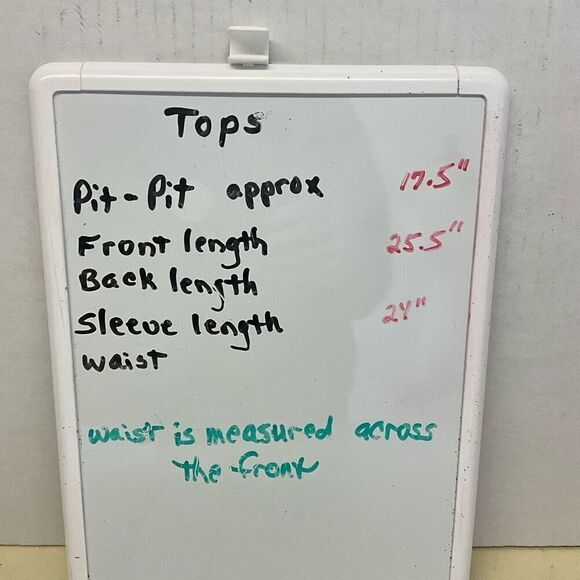 Tops
Pit-Pit approx 17.5"
Front length 25.5"
Back length
Sleeve length 24"
waist
waist is measured across
the front